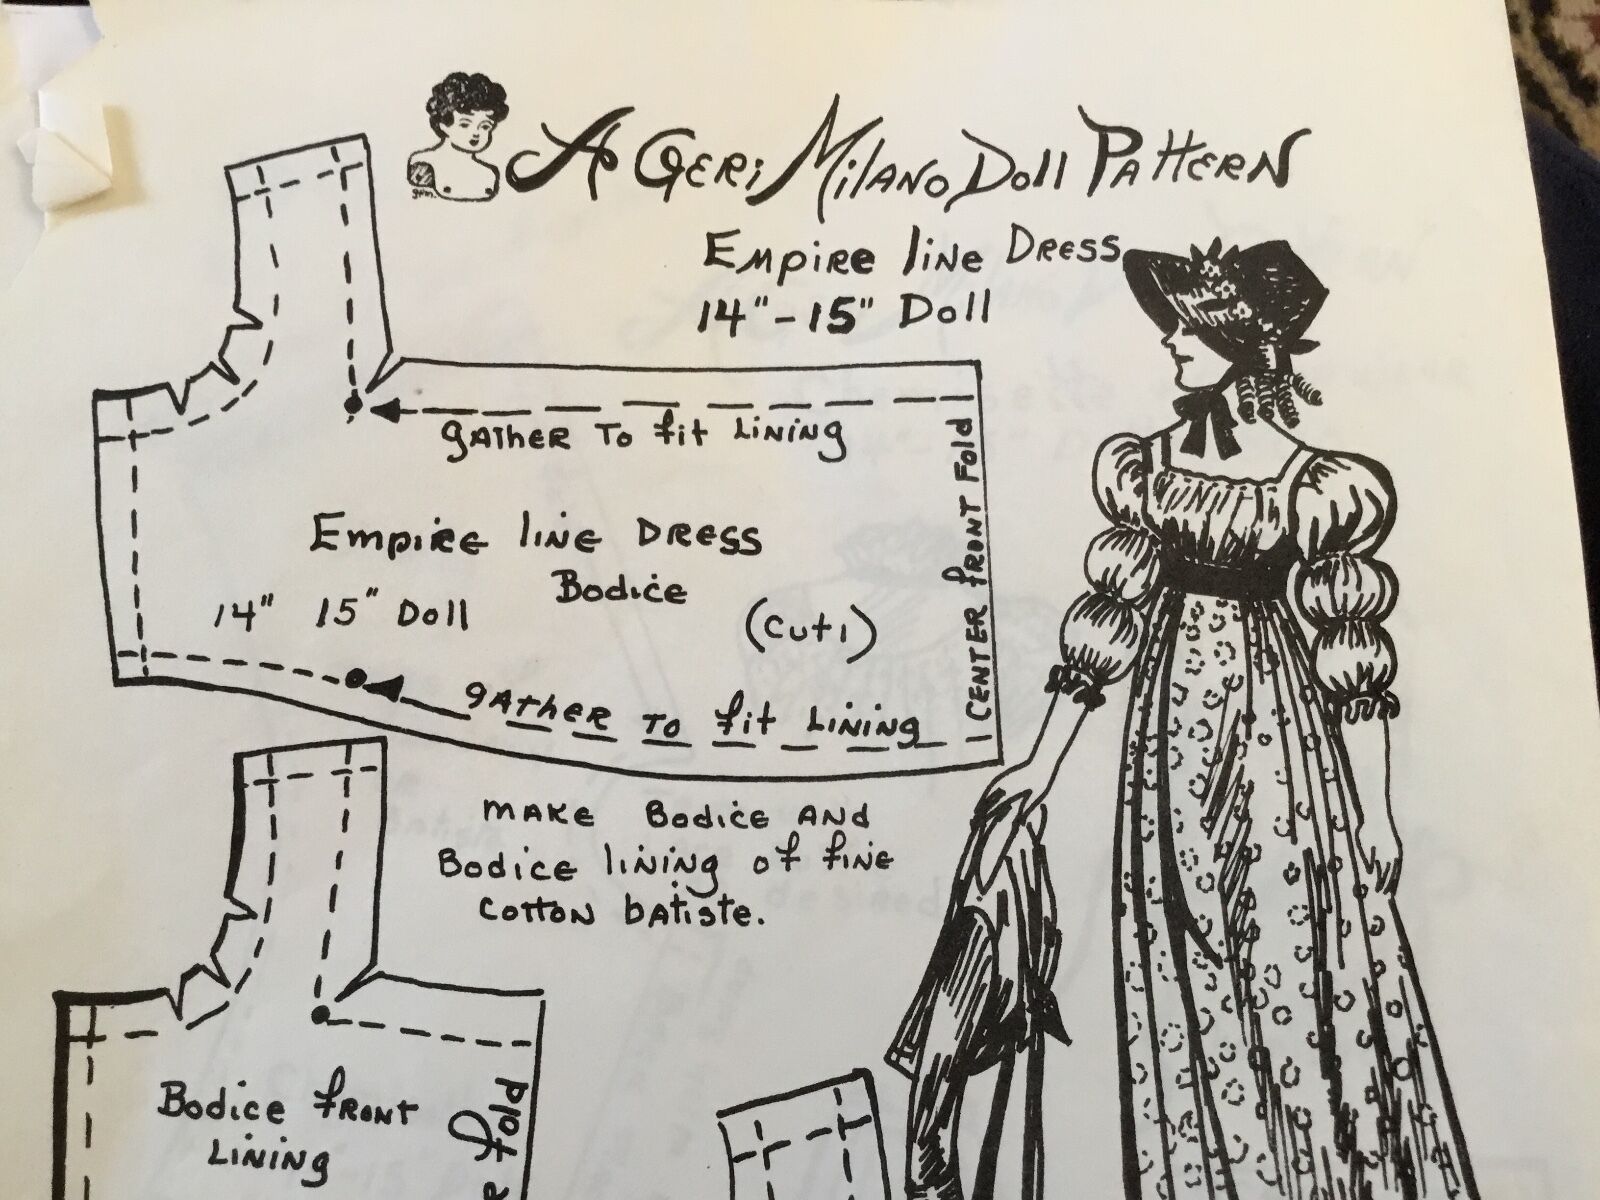 A Geri Milano Doll Pattern
Empire line Dress
14"-15" Doll
gather to fit lining
Center front fold
Empire line Dress
Bodice
14" 15" Doll
(cut 1)
gather to fit lining
make Bodice and
Bodice lining of fine
cotton batiste.
Bodice front
lining
fold